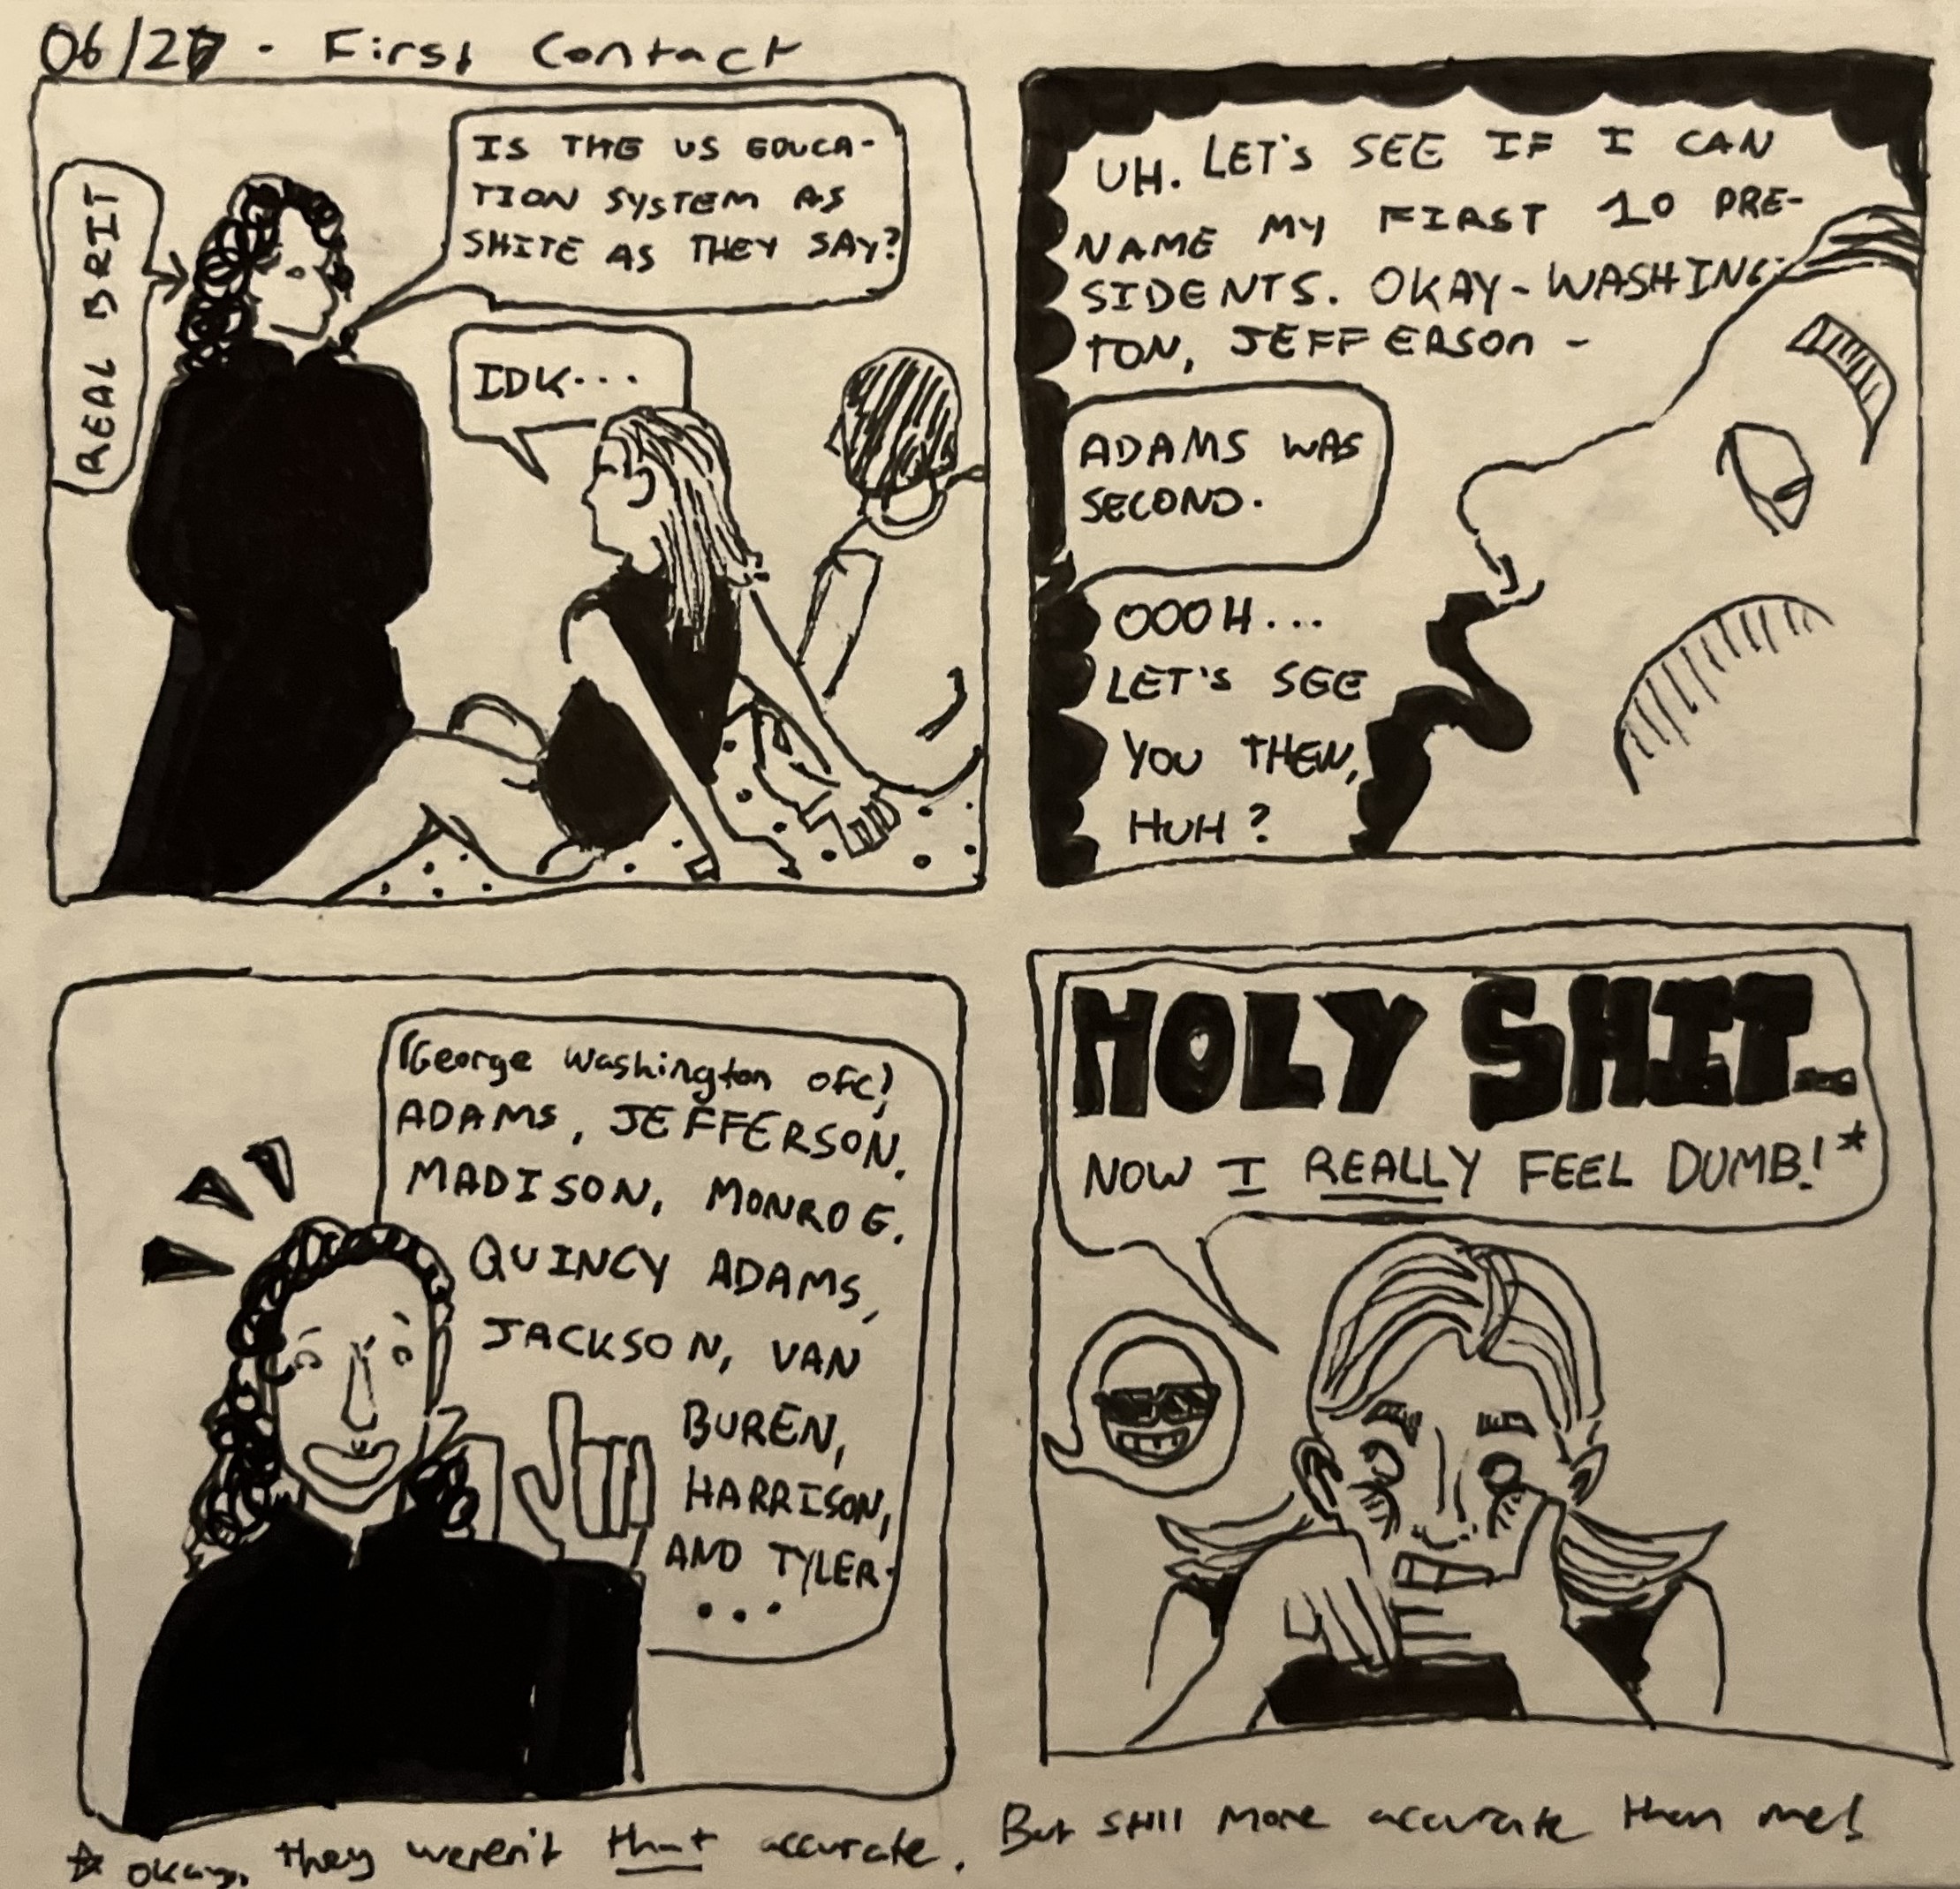 06/27 - First Contact
REAL BRIT
IS THE US EDUCA-
TION SYSTEM AS
SHITE AS THEY SAY?
IDK...
UH. LET'S SEE IF I CAN
NAME MY FIRST 10 PRE-
SIDENTS. OKAY-WASHING-
TON, JEFFERSON -
ADAMS WAS
SECOND.
OOOH...
LET'S SEE
YOU THEN,
HUH?
(George Washington ofc)
ADAMS, JEFFERSON.
MADISON, MONROE.
QUINCY ADAMS,
JACKSON, VAN
BUREN,
HARRISON,
AND TYLER.
...
HOLY SHIT...
NOW I REALLY FEEL DUMB!*
* okay, they weren't that accurate. But still more accurate than me!